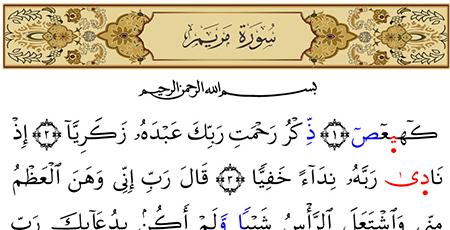 سُورَةُ مَرْيَمَ
بِسْمِ اللهِ الرَّحْمٰنِ الرَّحِيمِ
كٓهيعٓصٓ ﴿١﴾ ذِكْرُ رَحْمَتِ رَبِّكَ عَبْدَهُۥ زَكَرِيَّآ ﴿٢﴾ إِذْ
نَادَىٰ رَبَّهُۥ نِدَآءً خَفِيًّا ﴿٣﴾ قَالَ رَبِّ إِنِّى وَهَنَ ٱلْعَظْمُ
مِنِّى وَٱشْتَعَلَ ٱلرَّأْسُ شَيْبًا وَلَمْ أَكُنۢ بِدُعَآئِكَ رَبِّ